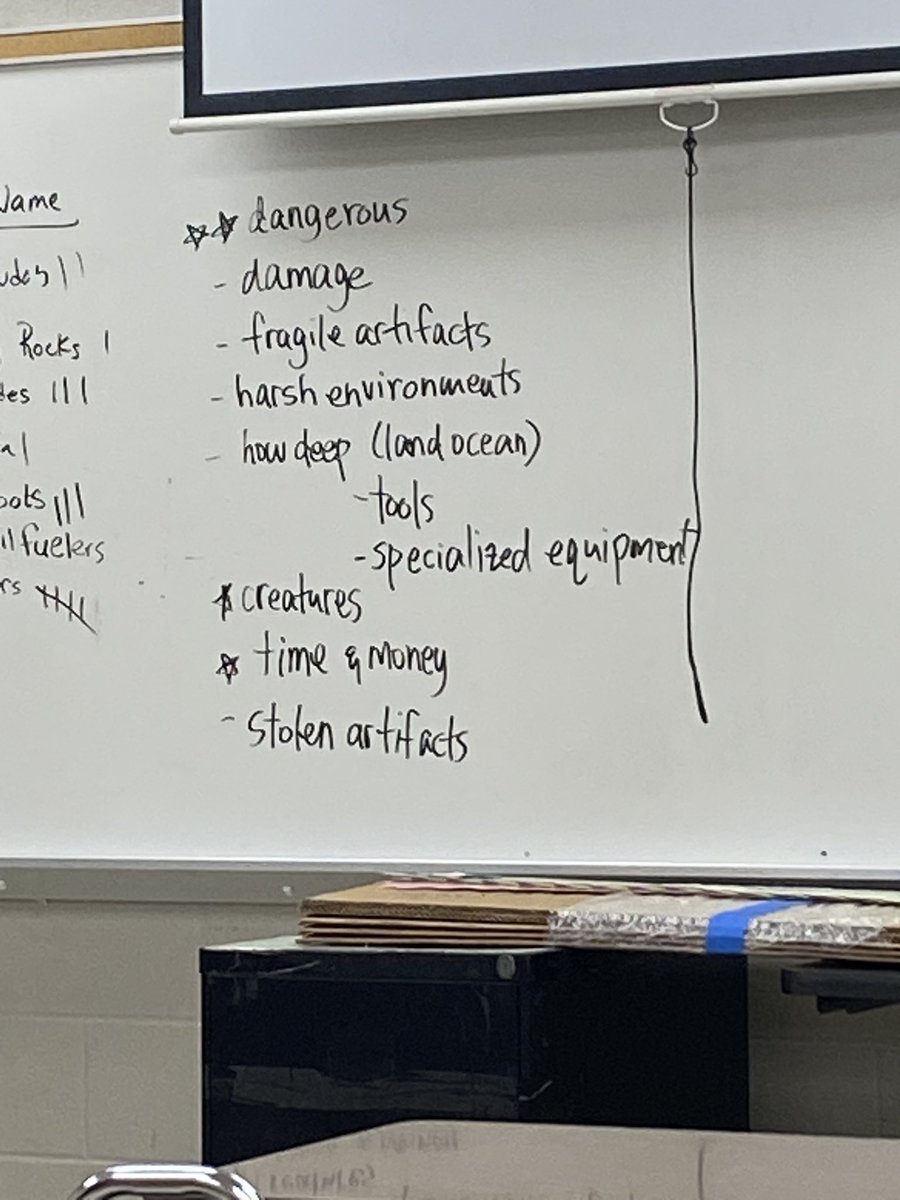 Name
Rocks |
|||
|||
fuelers
dangerous
- damage
- fragile artifacts
- harsh environments
- how deep (land ocean)
- tools
- specialized equipment
creatures
time & money
- Stolen artifacts